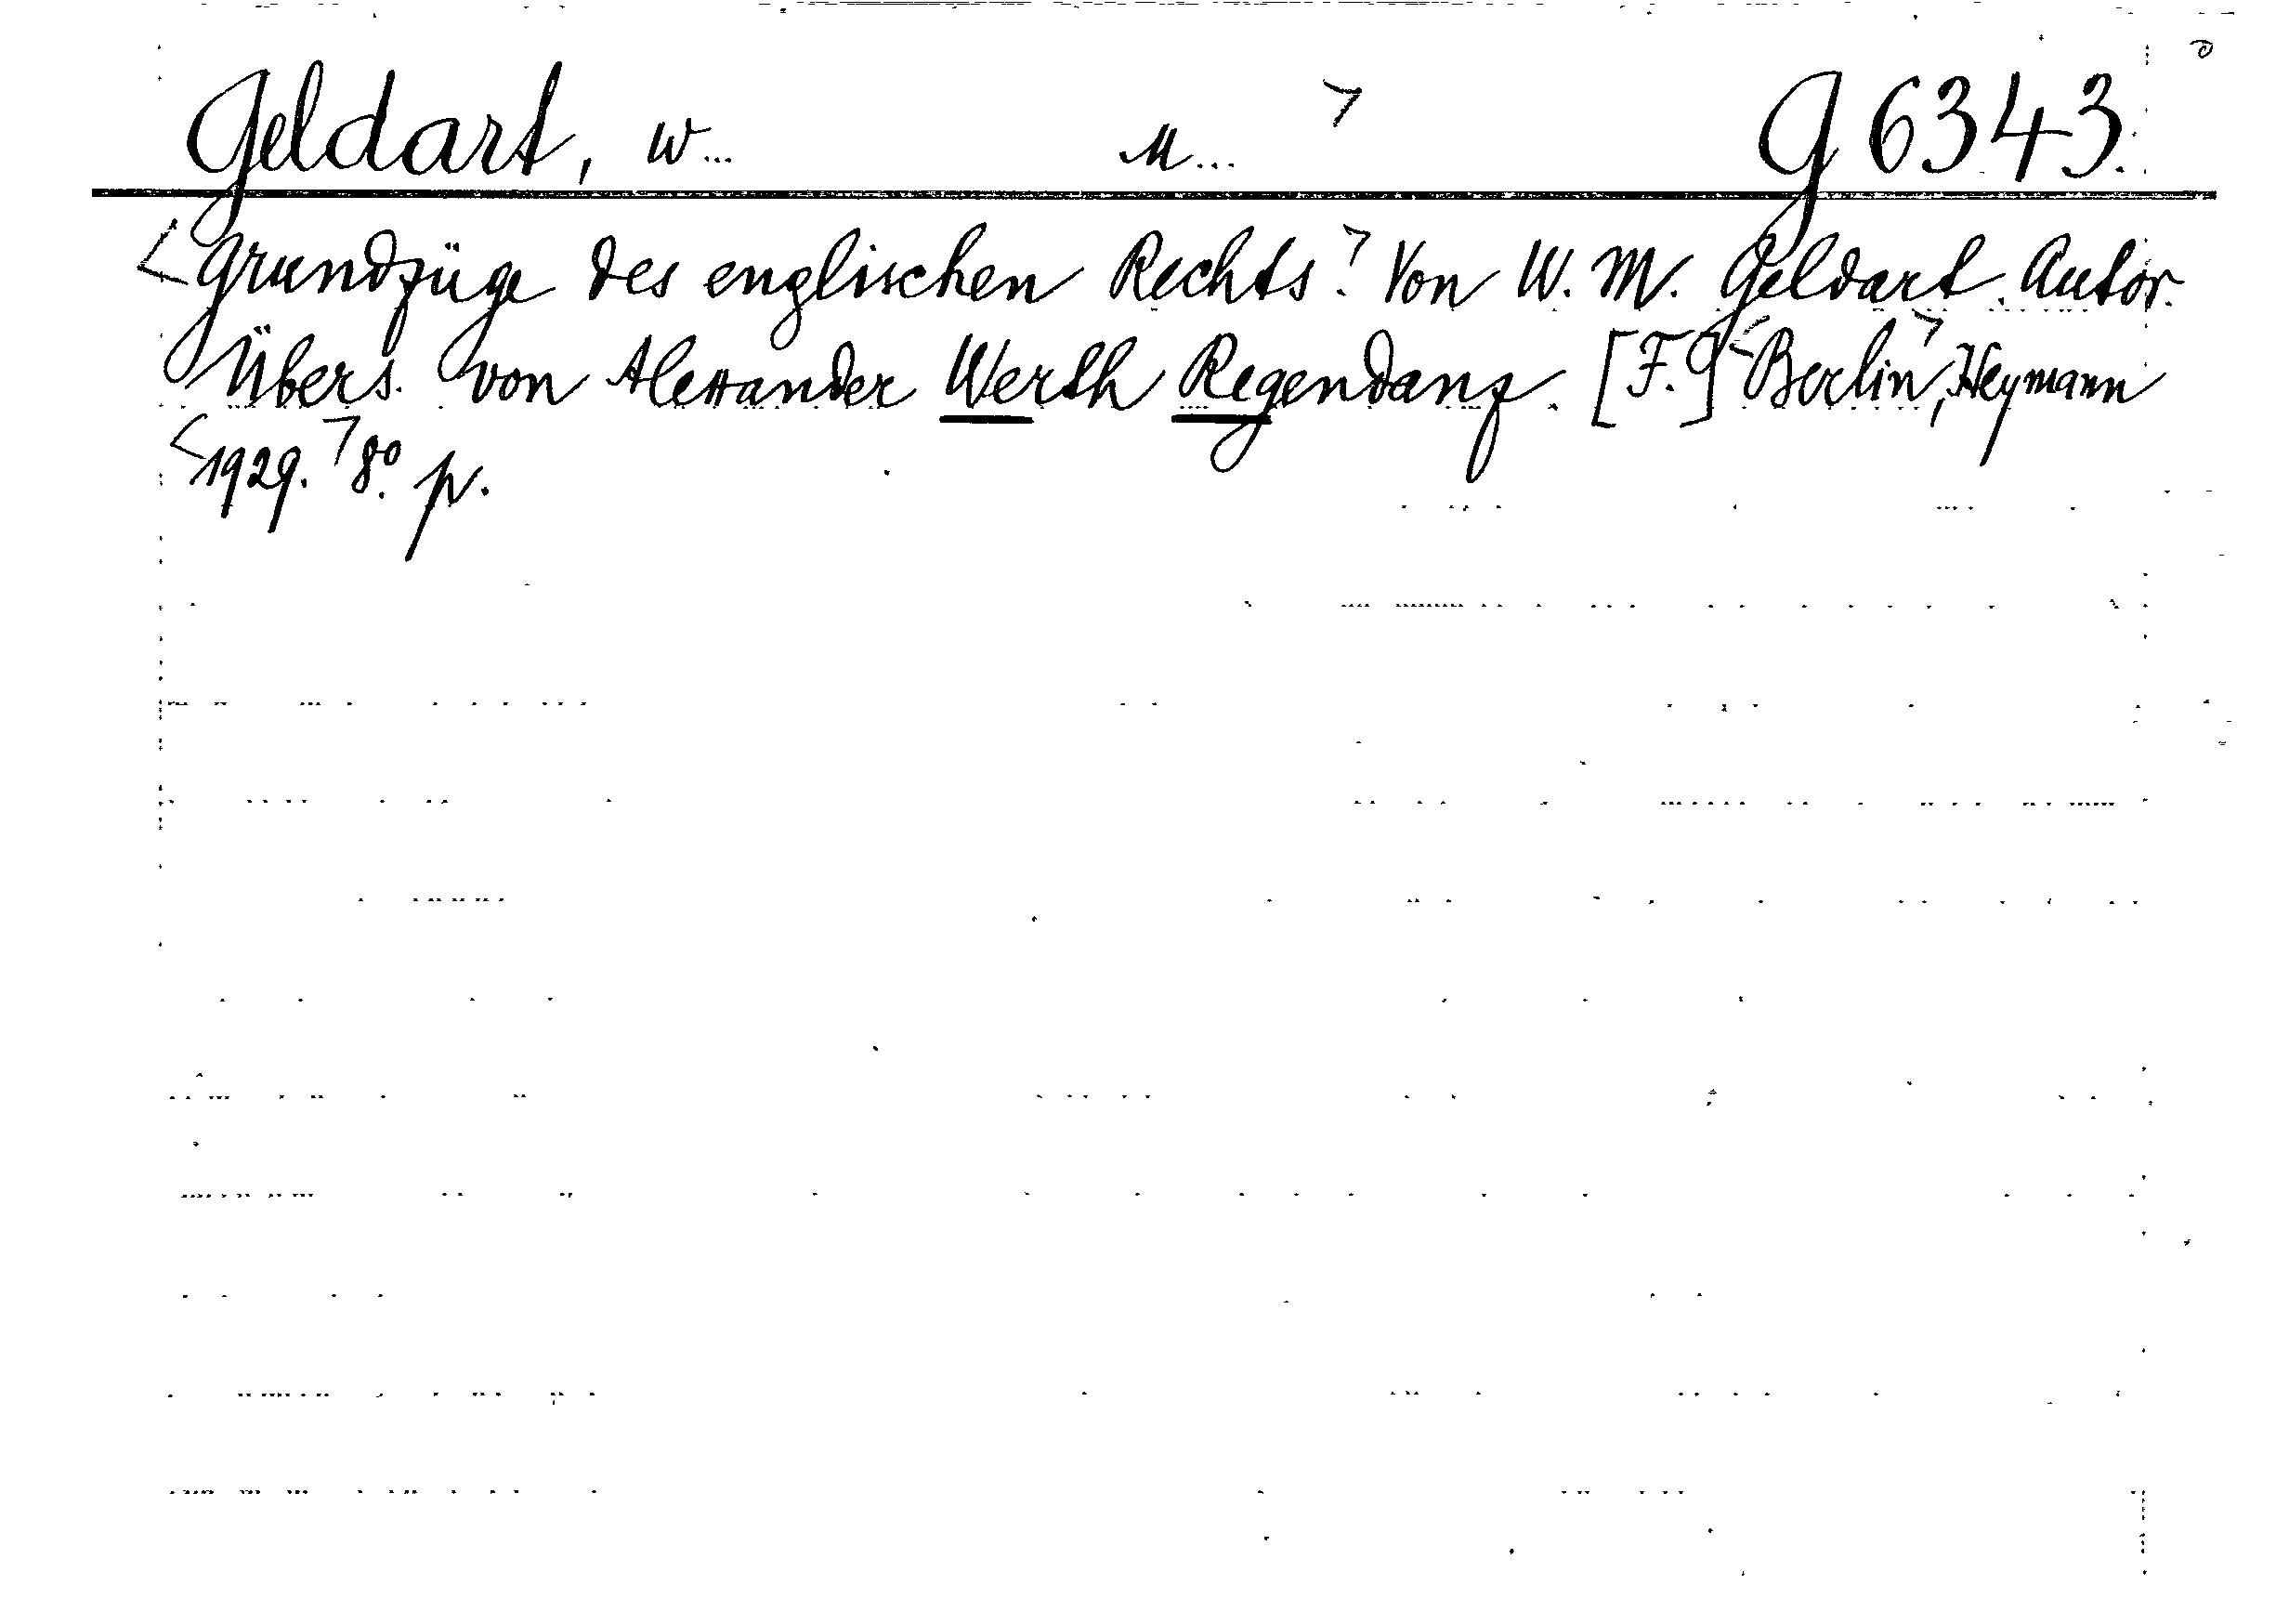 Geldart, W... M... G 6343.
Grundzüge des englischen Rechts. Von W. M. Geldart. Autor.
Übers. von Alexander Werth Regendanz. [F.] Berlin, Heymann
1929. 8º. p.